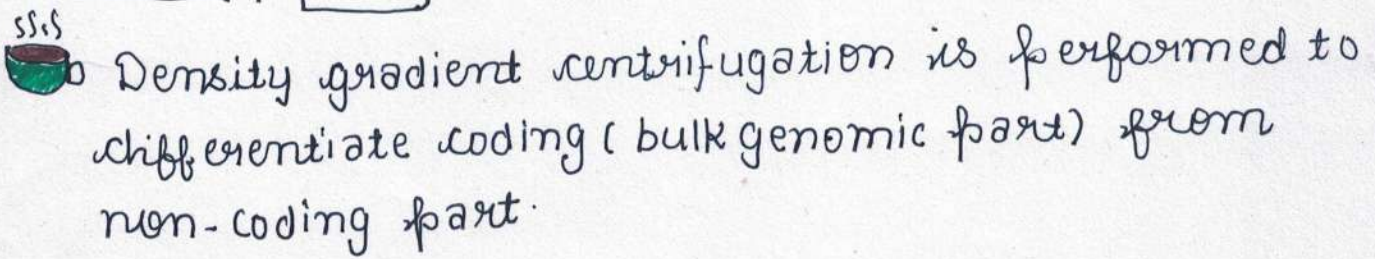 Density gradient centrifugation is performed to
differentiate coding (bulk genomic part) from
non-coding part.